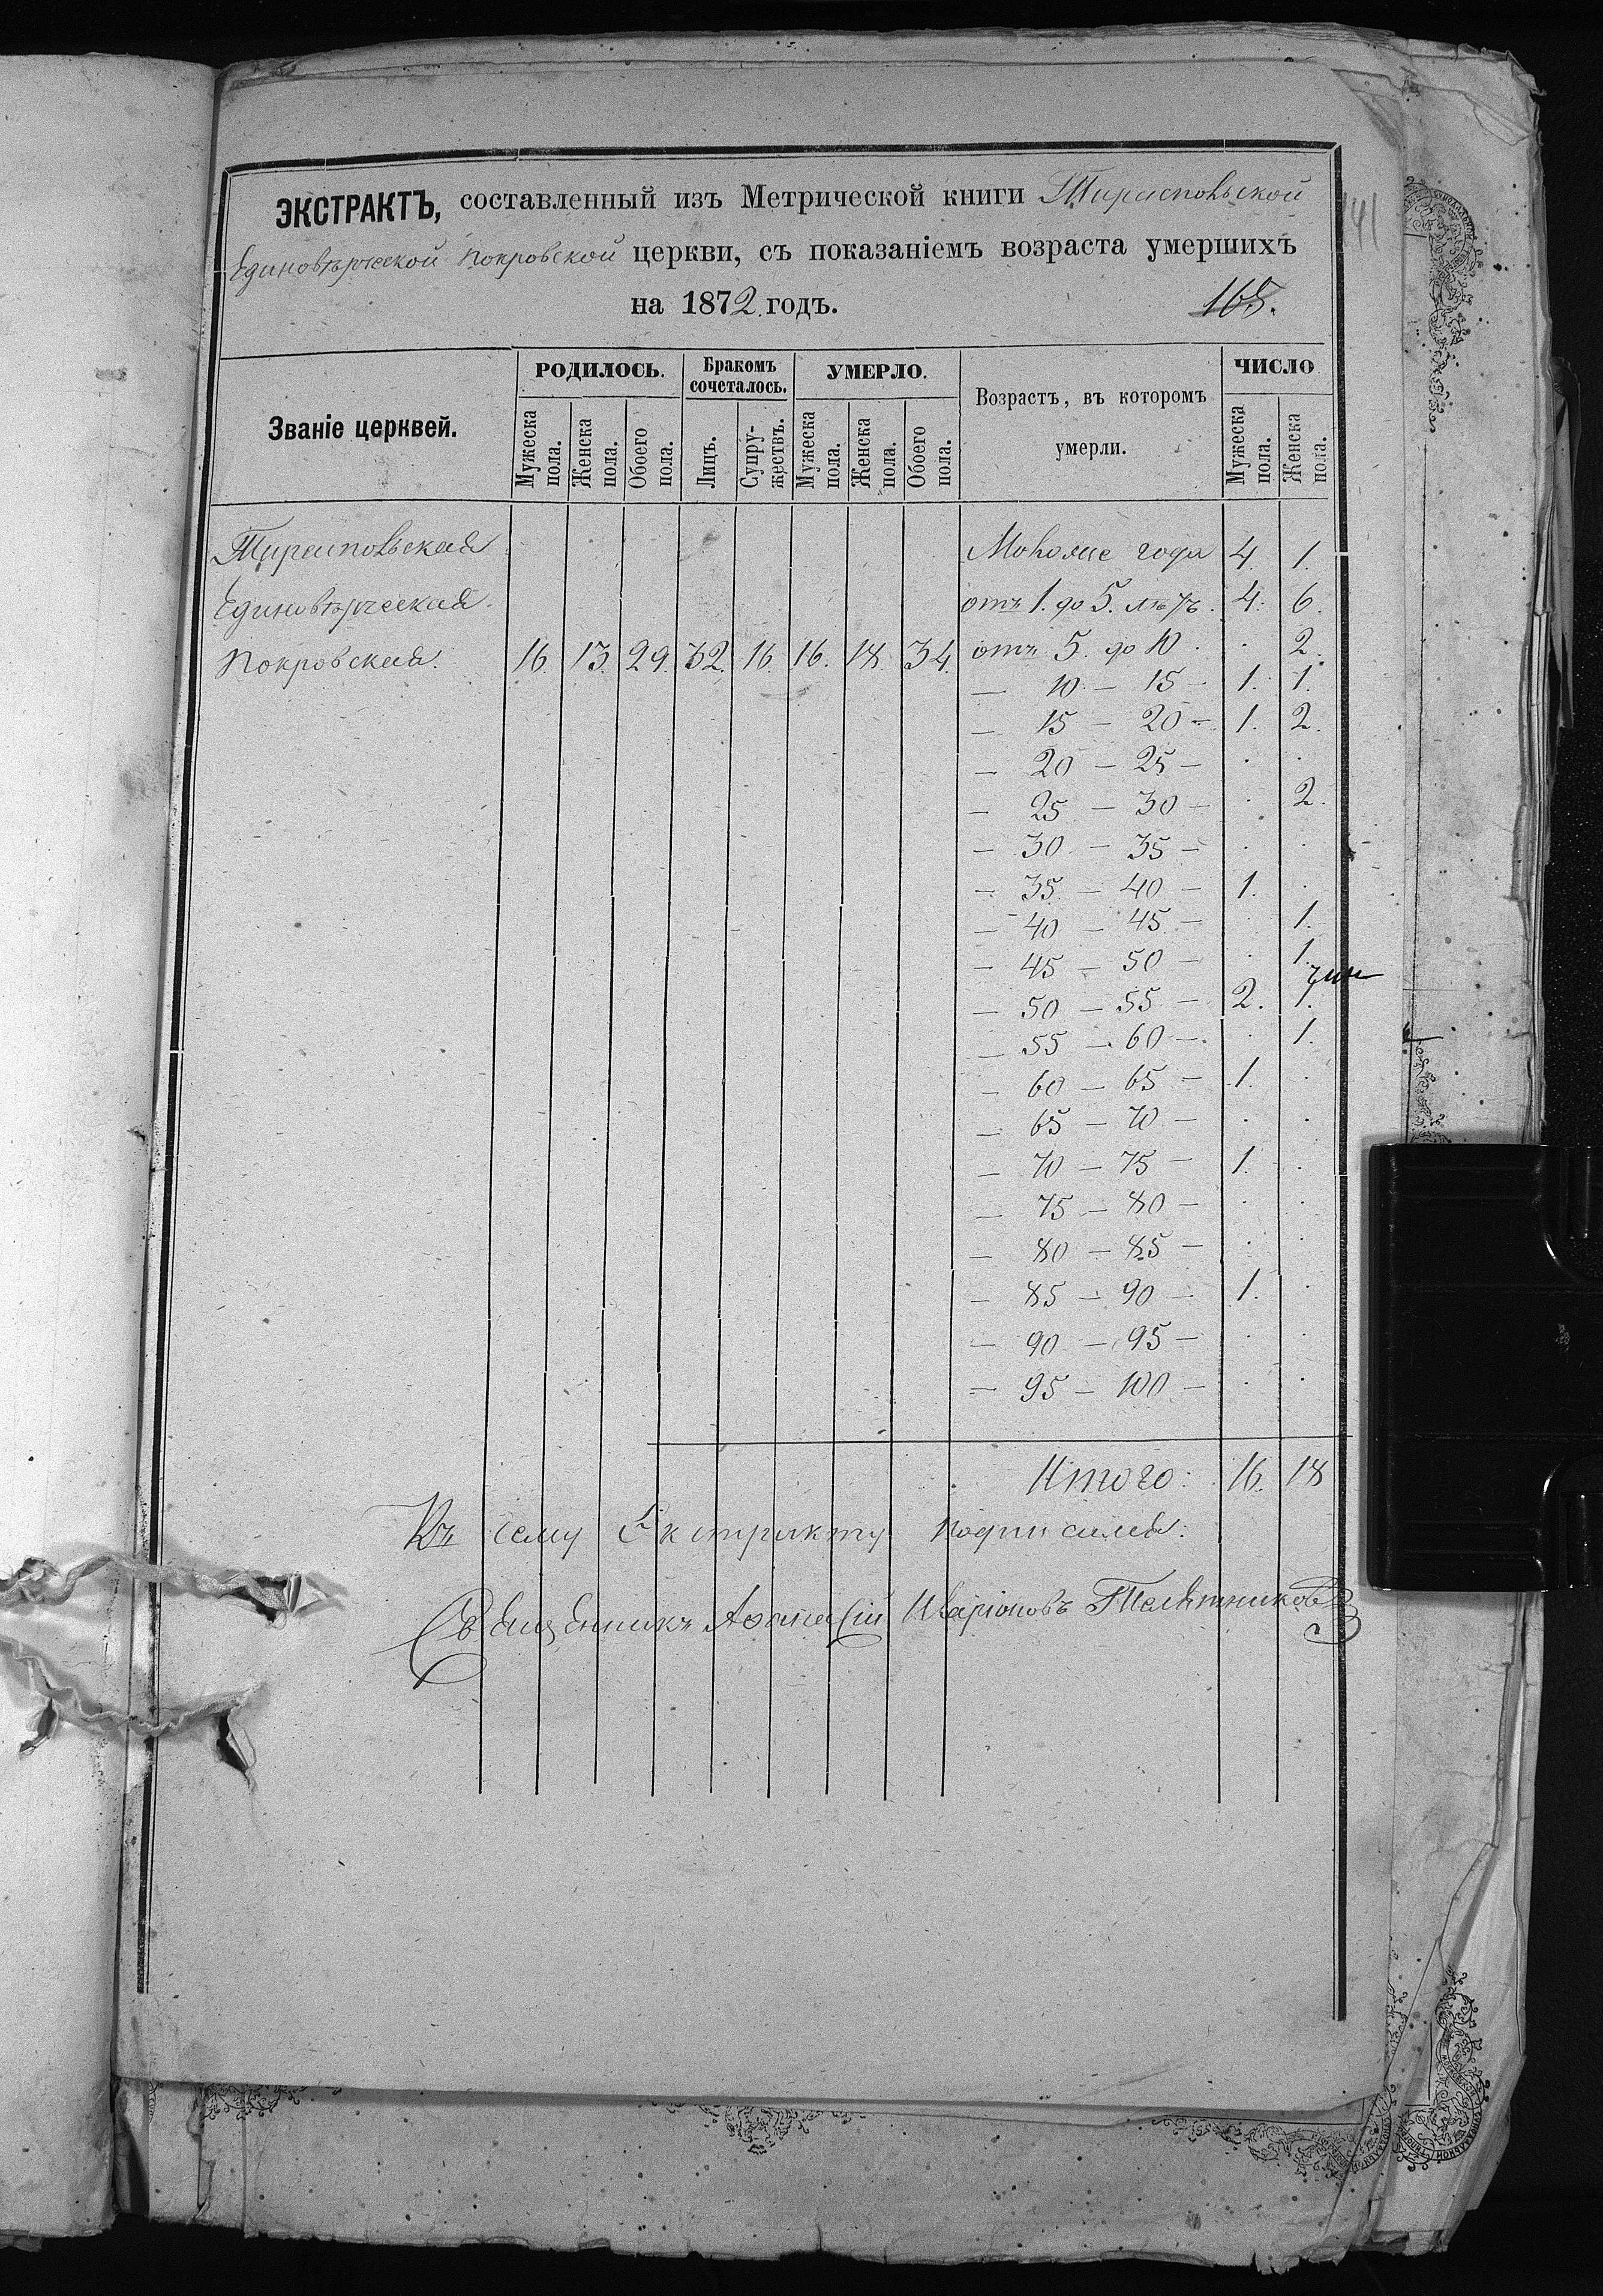 ЭКСТРАКТЪ, составленный изъ Метрической книги Тирспольской
Единовѣрческой Покровской церкви, съ показаніемъ возраста умершихъ
на 1872. годъ.
165.
141
Званіе церквей.
РОДИЛОСЬ. Бракомъ сочеталось. УМЕРЛО. Возрастъ, въ которомъ умерли. ЧИСЛО
Мужеска пола. Женска пола. Обоего пола. Лицъ. Супружествъ. Мужеска пола. Женска пола. Обоего пола. Мужеска пола. Женска пола.
Тирспольская Моложе года 4. 1.
Единовѣрческая. отъ 1. до 5. лѣтъ. 4. 6.
Покровская. 16. 13. 29. 32. 16. 16. 18. 34. отъ 5. до 10. . 2.
— 10 — 15 — 1. 1.
— 15 — 20 — 1. 2.
— 20 — 25 — . .
— 25 — 30 — . 2.
— 30 — 35 — . .
— 35 — 40 — 1. .
— 40 — 45 — . 1.
— 45 — 50 — . 1.
— 50 — 55 — 2. 1.
— 55 — 60 — . 1.
— 60 — 65 — 1. .
— 65 — 70 — . .
— 70 — 75 — 1. .
— 75 — 80 — . .
— 80 — 85 — . .
— 85 — 90 — 1. .
— 90 — 95 — . .
— 95 — 100 — . .
Итого: 16. 18
Къ сему Екстракту подписался:
Священникъ Аѳанасій Иларіоновъ Телѣтниковъ